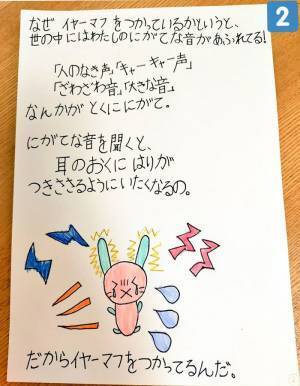 2
なぜ イヤーマフ をつかっているかというと、
世の中にはわたしのにがてな音があふれてる!
「人のなき声」「キャーキャー声」
「ざわざわ音」「大きな音」
なんかがとくににがて。
にがてな音を聞くと、
耳のおくに はりが
つきささるようにいたくなるの。
だからイヤーマフをつかってるんだ。